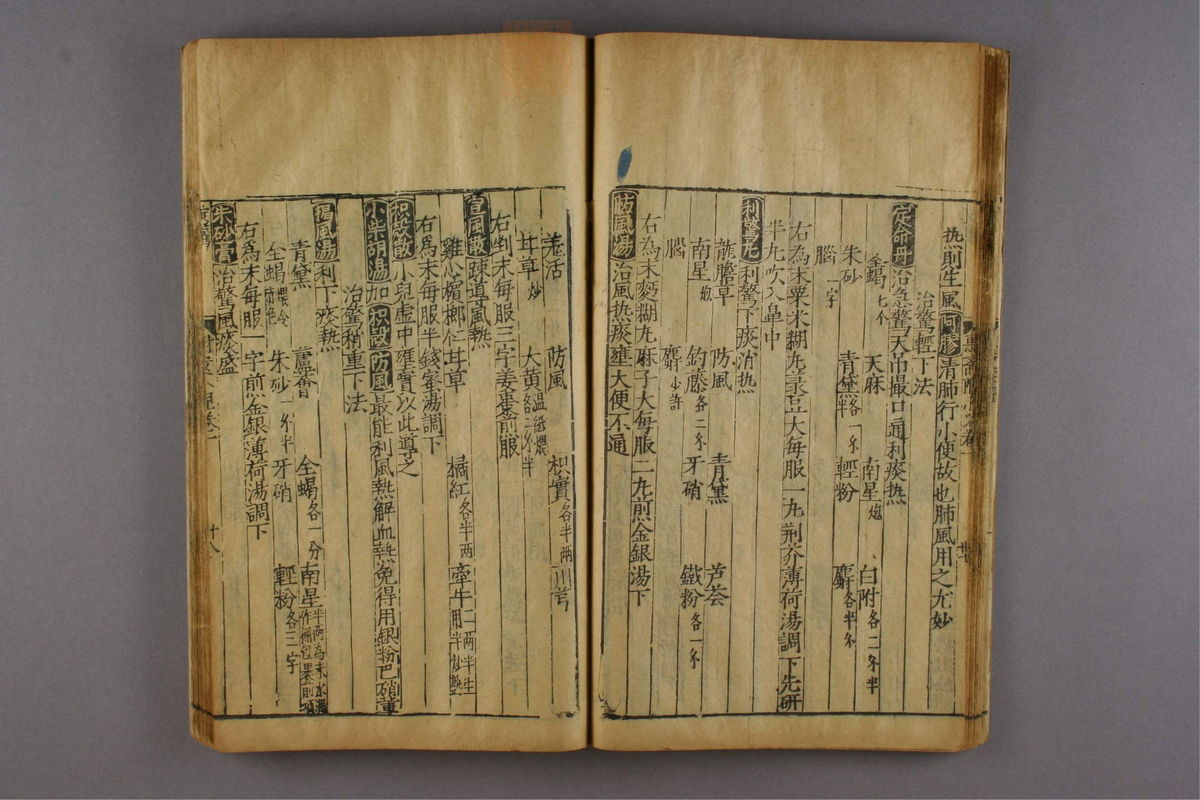 热則生風阿膠清肺行小便故也肺風用之尤妙
治驚輕下法
定命丹治急驚天吊撮口通利痰热
全蝎七个 天麻 南星炮 白附各二分半
朱砂 青黛各一分半 輕粉 麝各半分
腦一字
右為末粟米糊丸菉豆大每服一丸荆芥薄荷湯調下先研
半丸吹入鼻中
利驚丸利驚下痰消热
龍膽草 防風 青黛 芦荟
南星炮 釣藤各二分 牙硝 鐵粉各一分
腦 麝少許
右為末麪糊丸麻子大每服二丸煎金銀湯下
防風湯治風热痰壅大便不通
羗活 防風 枳實各半两 川芎
甘草炒 大黄温紙煨各二分半
右剉末每服三字姜棗煎服
宣風散踈導風熱
雞心檳榔仁 甘草 橘紅各半两 牽牛二两半生用半炒熟
右為末每服半錢蜜湯調下
枳殼散小兒虛中壅實以此導之
小柴胡湯加枳殼防風最能利風熱解血熱免得用銀粉巴硝輩
治驚稍重下法
揭風湯利下痰熱
青黛 蘆薈 全蝎各一分 南星半两為末水調作餅包裹前項
全蝎煨令赤色 朱砂一分半 牙硝 輕粉各三字
右為末每服一字煎金銀薄荷湯調下
朱砂膏治驚風痰盛
十八